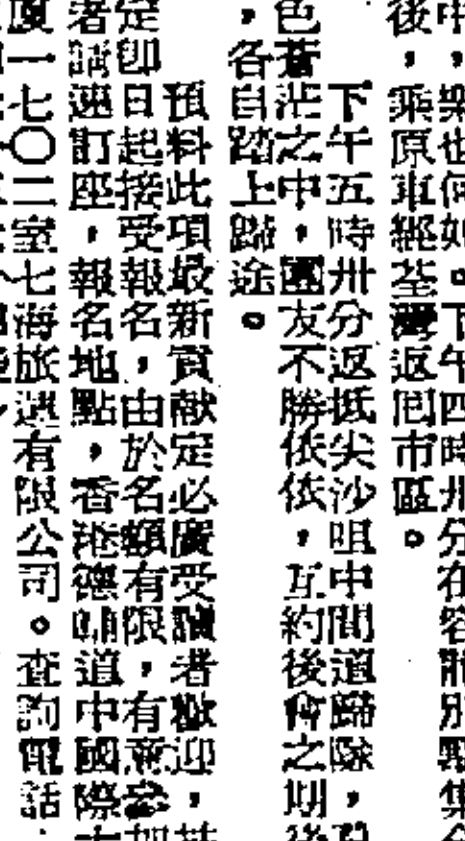 中，樂也何如。下午四時卅分在容龍別墅集合
後，乘原車經荃灣返囘市區。
下午五時卅分返抵尖沙咀中間道歸隊，
色蒼茫之中，團友不勝依依，互約後會之期，
，各自踏上歸途。
預料此項最新貢献定必廣受讀者歡迎，
定卽日起接受報名，由於名額有限，有意參加
者請速訂座，報名地點，香港德輔道中國際大
厦一七〇二室七海旅運有限公司。查詢電話